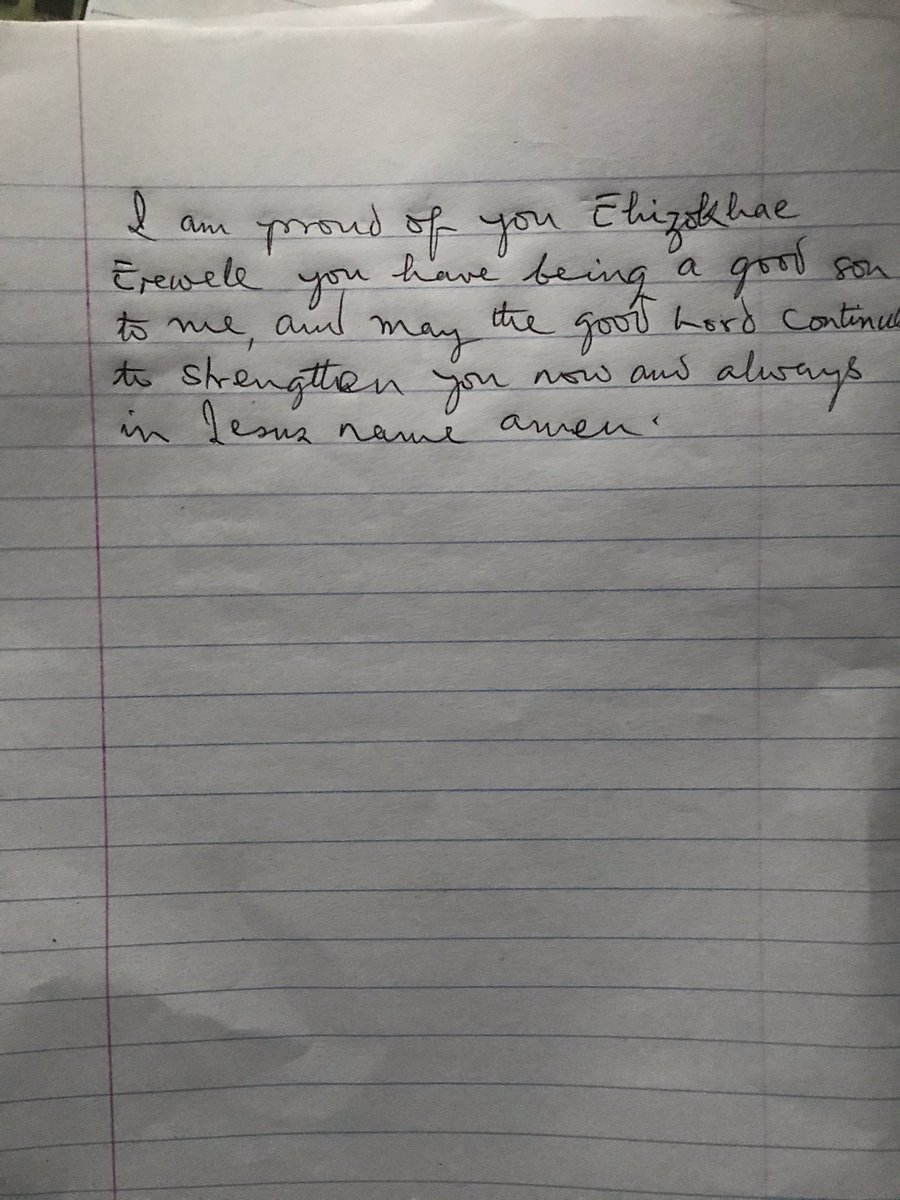 I am proud of you Ehizokhae
Erewele you have being a good son
to me, and may the good Lord Continue
to strengthen you now and always
in Jesus name amen.